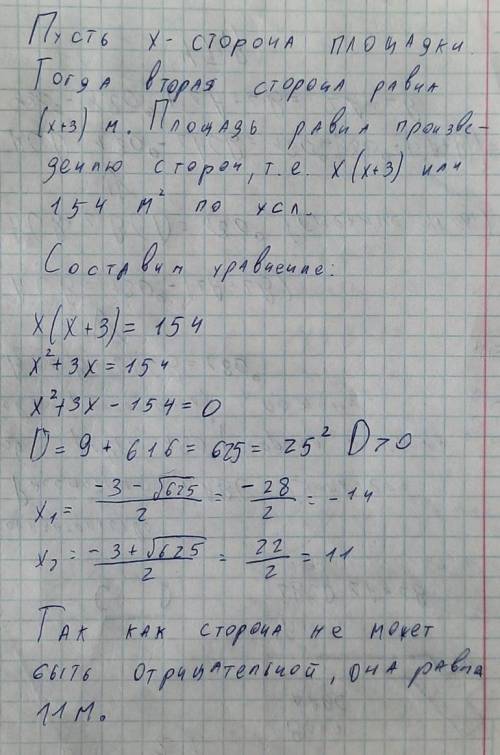 Пусть x - сторона площадки.
Тогда вторая сторона равна
(x+3) м. Площадь равна произве-
дению сторон, т.е. x(x+3) или
154 м² по усл.
Составим уравнение:
x(x+3) = 154
x²+3x = 154
x²+3x - 154 = 0
D = 9 + 616 = 625 = 25² D>0
x₁ = (-3 - √625)/2 = -28/2 = -14
x₂ = (-3 + √625)/2 = 22/2 = 11
Так как сторона не может
быть отрицательной, она равна
11 м.